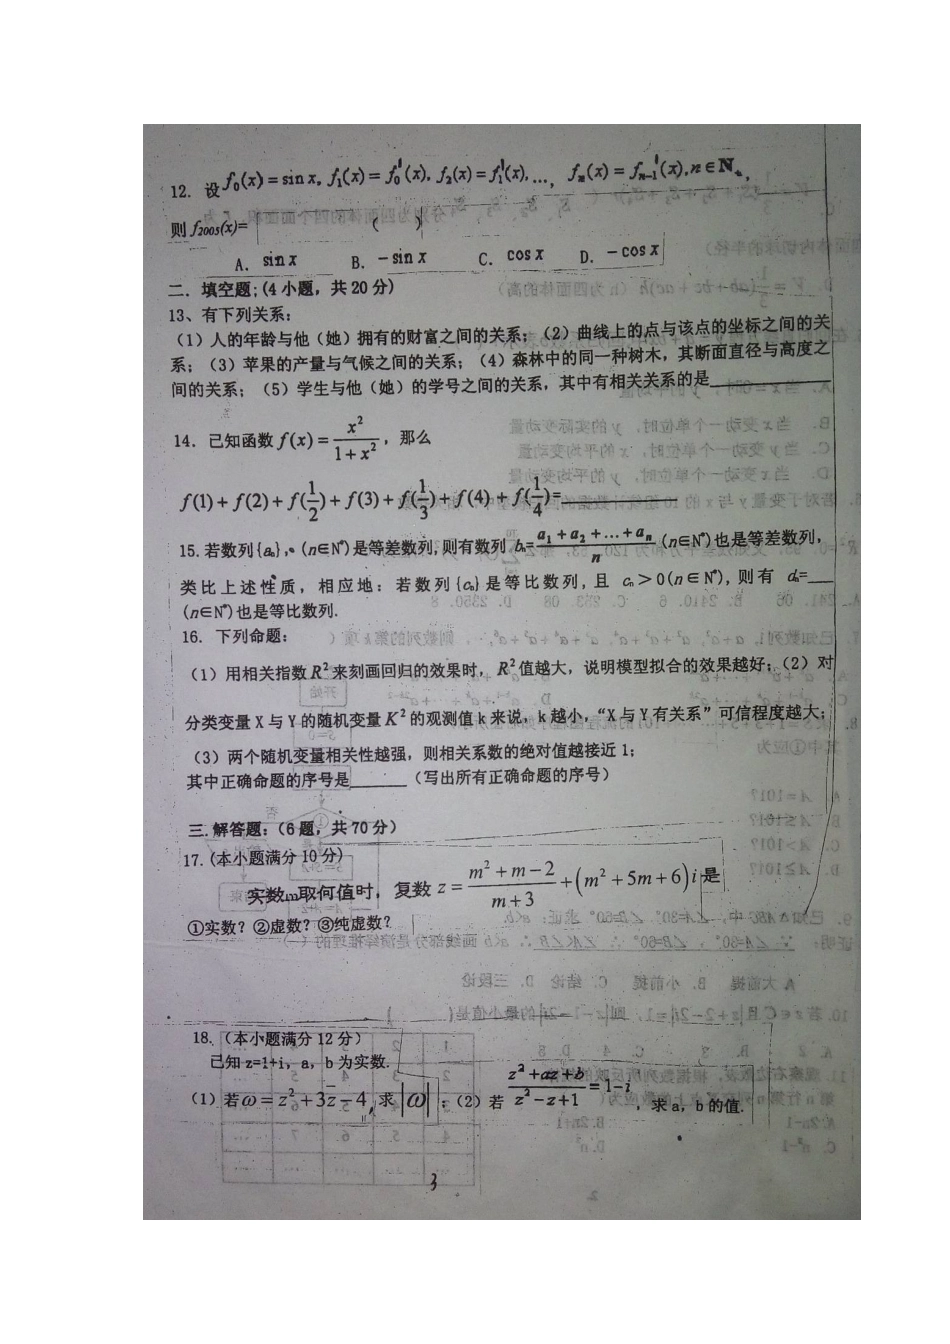 12. 设f₀(x)=sin x, f₁(x)=f₀'(x), f₂(x)=f₁'(x),..., fₙ(x)=fₙ₋₁'(x), n∈N₊,
则f₂₀₀₅(x)= ( )
A. sin x B. －sin x C. cos x D. －cos x
二. 填空题;(4小题，共20分)
13、有下列关系：
(1)人的年龄与他（她）拥有的财富之间的关系；(2)曲线上的点与该点的坐标之间的关
系；(3)苹果的产量与气候之间的关系；(4)森林中的同一种树木，其断面直径与高度之
间的关系；(5)学生与他（她）的学号之间的关系，其中有相关关系的是______
14. 已知函数f(x)=x²/(1+x²)，那么
f(1)+f(2)+f(1/2)+f(3)+f(1/3)+f(4)+f(1/4)=______
15. 若数列{aₙ}, (n∈N*)是等差数列,则有数列bₙ=(a₁+a₂+…+aₙ)/n (n∈N*)也是等差数列,
类比上述性质，相应地：若数列{cₙ}是等比数列,且 cₙ>0(n∈N*),则有 dₙ=___
(n∈N*)也是等比数列.
16. 下列命题：
(1)用相关指数R²来刻画回归的效果时，R²值越大，说明模型拟合的效果越好；(2)对
分类变量X与Y的随机变量K²的观测值k来说，k越小，“X与Y有关系”可信程度越大；
(3)两个随机变量相关性越强，则相关系数的绝对值越接近1；
其中正确命题的序号是______（写出所有正确命题的序号）
三.解答题:（6题，共70分）
17.(本小题满分10分)
实数m取何值时，复数z=(m²+m－2)/(m+3)+(m²+5m+6)i是
①实数？②虚数？③纯虚数？
18.（本小题满分12分）
已知z=1+i，a，b为实数.
(1)若ω=z²+3z̄－4,求|ω|；(2)若(z²+az+b)/(z²－z+1)=1－i，求a，b的值.
3